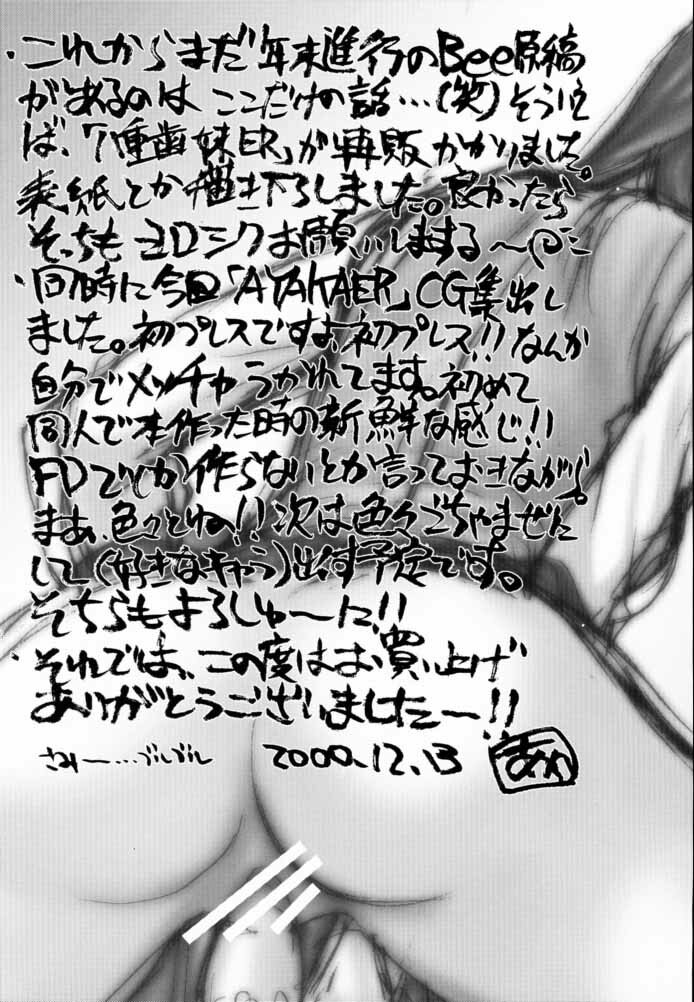 ・これからまだ年末進行のBee原稿
があるのはここだけの話…(笑)そういえ
ば、「八重歯妹ER」が再販かかりました。
表紙とか描き下ろしました。良かったら
そっちもヨロシクお願いしまする〜
・同時に今回「AYAKAER」CG集出し
ました。初プレスですよ、初プレス!!なんか
自分でメッチャうかれてます。初めて
同人で本作った時の新鮮な感じ!!
FDでしか作らないとか言っておきながら。
まあ、色々とね!!次は色々ごちゃまぜに
して(好きなキャラ)出す予定です。
そちらもよろしゅ〜に!!
・それでは、この度はお買い上げ
ありがとうございましたー!!
さみー…ブルブル 2000.12.13